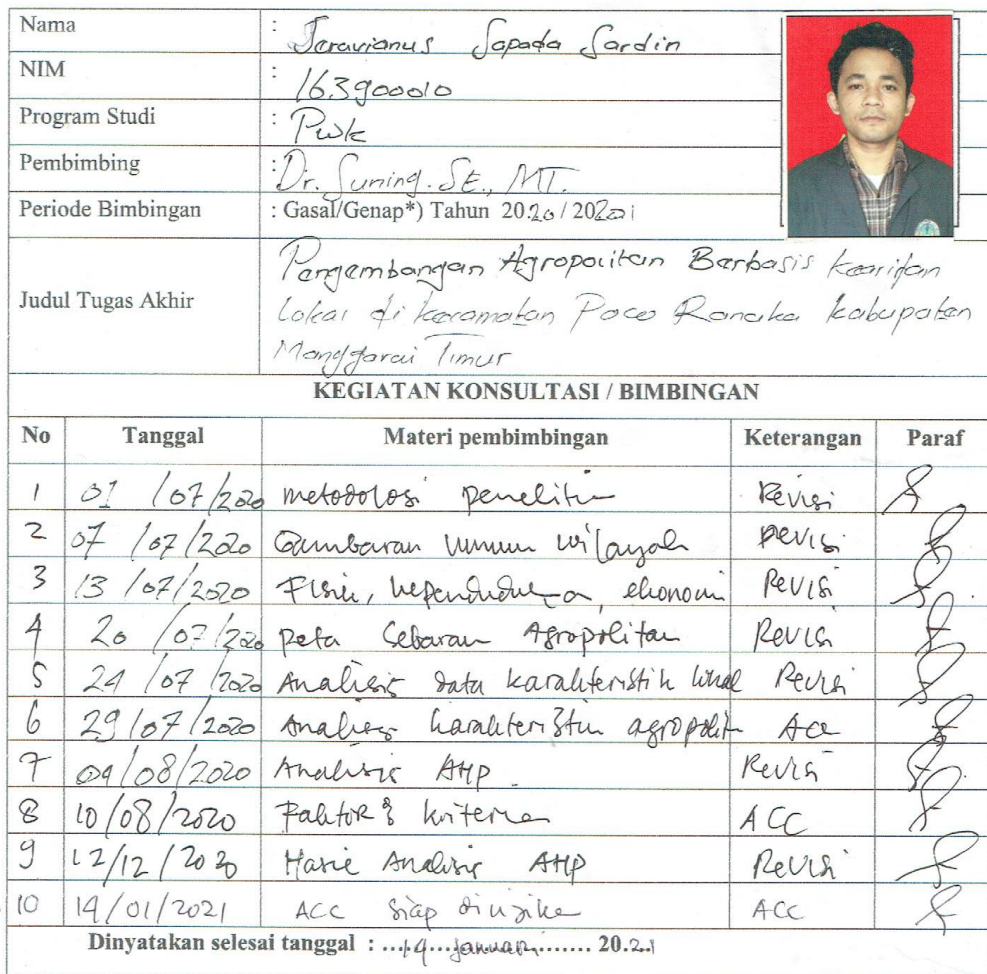 Nama : Jeravianus Sapada Sardin
NIM : 163900010
Program Studi : Pwk
Pembimbing : Dr. Suning. SE., MT.
Periode Bimbingan : Gasal/Genap*) Tahun 2020/2021
Judul Tugas Akhir : Pengembangan Agropolitan Berbasis Kearifan
Lokal di Kecamatan Poco Ranaka Kabupaten
Manggarai Timur
KEGIATAN KONSULTASI / BIMBINGAN
No Tanggal Materi pembimbingan Keterangan Paraf
1 01/07/2020 metodologi penelitin Revisi
2 07/07/2020 Gambaran umum wilayah Revisi
3 13/07/2020 Fisik, kependudukan, ekonomi Revisi
4 20/07/2020 peta Sebaran Agropolitan Revisi
5 24/07/2020 Analisis data karakteristik lokal Revisi
6 29/07/2020 Analisis karakteristik agropolit Acc
7 04/08/2020 Analisis AHP Revisi
8 10/08/2020 Faktor & kriteria ACC
9 12/12/2020 Hasil Analisis AHP Revisi
10 14/01/2021 ACC Siap diujikan ACC
Dinyatakan selesai tanggal : ....14...januari......... 20.21